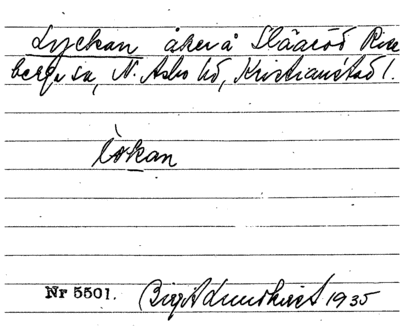 Lyckan åker å Släaröd Rise
berga sn, N. Åsbo hd, Kristianstad l.
lökan
Nr 5501. Birgit Lundkvist 1935